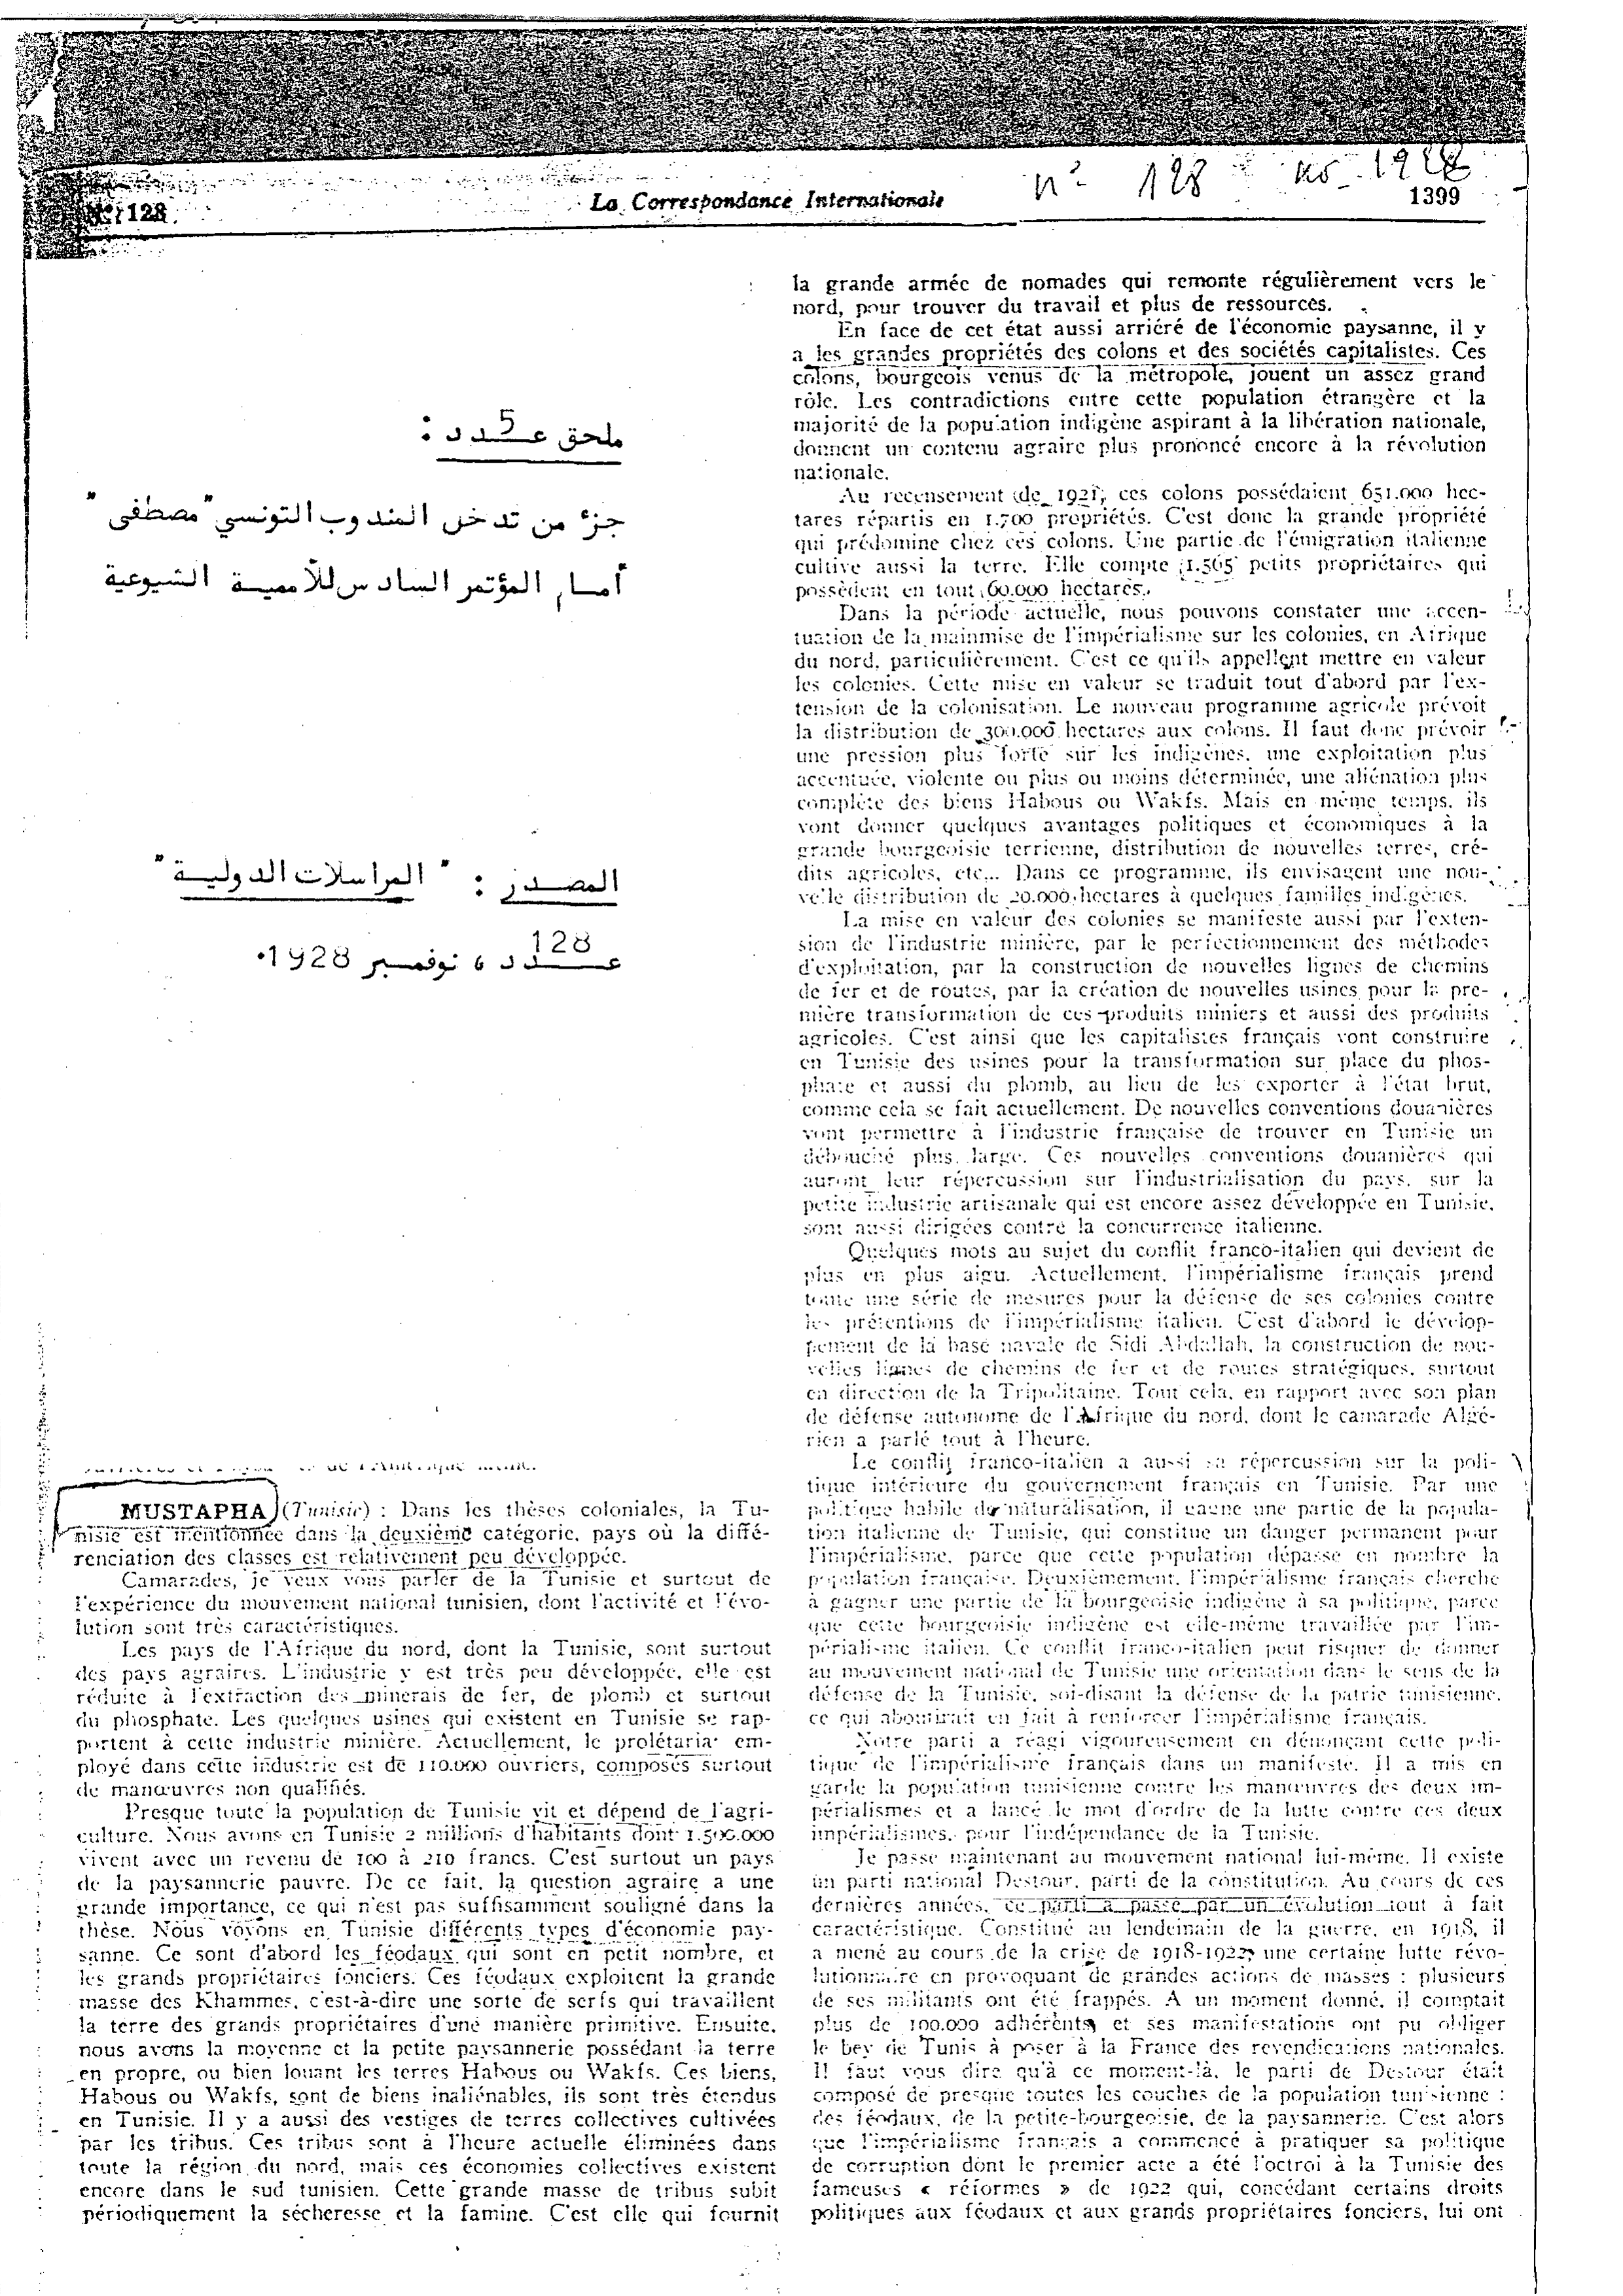 N° 128
La Correspondance Internationale
n° 128
1399
ملحق عدد 5 :
جزء من تدخل المندوب التونسي "مصطفى"
أمام المؤتمر السادس للأممية الشيوعية
المصدر : "المراسلات الدولية"
عدد 128 ، نوفمبر 1928.
MUSTAPHA (Tunisie) : Dans les thèses coloniales, la Tu-
nisie est mentionnée dans la deuxième catégorie, pays où la diffé-
renciation des classes est relativement peu développée.
Camarades, je veux vous parler de la Tunisie et surtout de
l'expérience du mouvement national tunisien, dont l'activité et l'évo-
lution sont très caractéristiques.
Les pays de l'Afrique du nord, dont la Tunisie, sont surtout
des pays agraires. L'industrie y est très peu développée, elle est
réduite à l'extraction des minerais de fer, de plomb et surtout
du phosphate. Les quelques usines qui existent en Tunisie se rap-
portent à cette industrie minière. Actuellement, le prolétariat em-
ployé dans cette industrie est de 110.000 ouvriers, composés surtout
de manœuvres non qualifiés.
Presque toute la population de Tunisie vit et dépend de l'agri-
culture. Nous avons en Tunisie 2 millions d'habitants dont 1.500.000
vivent avec un revenu de 100 à 210 francs. C'est surtout un pays
de la paysannerie pauvre. De ce fait, la question agraire a une
grande importance, ce qui n'est pas suffisamment souligné dans la
thèse. Nous voyons en Tunisie différents types d'économie pay-
sanne. Ce sont d'abord les féodaux qui sont en petit nombre, et
les grands propriétaires fonciers. Ces féodaux exploitent la grande
masse des Khammes, c'est-à-dire une sorte de serfs qui travaillent
la terre des grands propriétaires d'une manière primitive. Ensuite,
nous avons la moyenne et la petite paysannerie possédant la terre
en propre, ou bien louant les terres Habous ou Wakfs. Ces biens,
Habous ou Wakfs, sont de biens inaliénables, ils sont très étendus
en Tunisie. Il y a aussi des vestiges de terres collectives cultivées
par les tribus. Ces tribus sont à l'heure actuelle éliminées dans
toute la région du nord, mais ces économies collectives existent
encore dans le sud tunisien. Cette grande masse de tribus subit
périodiquement la sécheresse et la famine. C'est elle qui fournit
la grande armée de nomades qui remonte régulièrement vers le
nord, pour trouver du travail et plus de ressources.
En face de cet état aussi arriéré de l'économie paysanne, il y
a les grandes propriétés des colons et des sociétés capitalistes. Ces
colons, bourgeois venus de la métropole, jouent un assez grand
rôle. Les contradictions entre cette population étrangère et la
majorité de la population indigène aspirant à la libération nationale,
donnent un contenu agraire plus prononcé encore à la révolution
nationale.
Au recensement de 1921, ces colons possédaient 651.000 hec-
tares répartis en 1.700 propriétés. C'est donc la grande propriété
qui prédomine chez ces colons. Une partie de l'émigration italienne
cultive aussi la terre. Elle compte 1.565 petits propriétaires qui
possèdent en tout 60.000 hectares.
Dans la période actuelle, nous pouvons constater une accen-
tuation de la mainmise de l'impérialisme sur les colonies, en Afrique
du nord, particulièrement. C'est ce qu'ils appellent mettre en valeur
les colonies. Cette mise en valeur se traduit tout d'abord par l'ex-
tension de la colonisation. Le nouveau programme agricole prévoit
la distribution de 300.000 hectares aux colons. Il faut donc prévoir
une pression plus forte sur les indigènes, une exploitation plus
accentuée, violente ou plus ou moins déterminée, une aliénation plus
complète des biens Habous ou Wakfs. Mais en même temps, ils
vont donner quelques avantages politiques et économiques à la
grande bourgeoisie terrienne, distribution de nouvelles terres, cré-
dits agricoles, etc... Dans ce programme, ils envisagent une nou-
velle distribution de 20.000 hectares à quelques familles indigènes.
La mise en valeur des colonies se manifeste aussi par l'exten-
sion de l'industrie minière, par le perfectionnement des méthodes
d'exploitation, par la construction de nouvelles lignes de chemins
de fer et de routes, par la création de nouvelles usines pour la pre-
mière transformation de ces produits miniers et aussi des produits
agricoles. C'est ainsi que les capitalistes français vont construire
en Tunisie des usines pour la transformation sur place du phos-
phate et aussi du plomb, au lieu de les exporter à l'état brut,
comme cela se fait actuellement. De nouvelles conventions douanières
vont permettre à l'industrie française de trouver en Tunisie un
débouché plus large. Ces nouvelles conventions douanières qui
auront leur répercussion sur l'industrialisation du pays, sur la
petite industrie artisanale qui est encore assez développée en Tunisie,
sont aussi dirigées contre la concurrence italienne.
Quelques mots au sujet du conflit franco-italien qui devient de
plus en plus aigu. Actuellement, l'impérialisme français prend
toute une série de mesures pour la défense de ses colonies contre
les prétentions de l'impérialisme italien. C'est d'abord le dévelop-
pement de la base navale de Sidi Abdallah, la construction de nou-
velles lignes de chemins de fer et de routes stratégiques, surtout
en direction de la Tripolitaine. Tout cela, en rapport avec son plan
de défense autonome de l'Afrique du nord, dont le camarade Algé-
rien a parlé tout à l'heure.
Le conflit franco-italien a aussi sa répercussion sur la poli-
tique intérieure du gouvernement français en Tunisie. Par une
politique habile de naturalisation, il gagne une partie de la popula-
tion italienne de Tunisie, qui constitue un danger permanent pour
l'impérialisme, parce que cette population dépasse en nombre la
population française. Deuxièmement, l'impérialisme français cherche
à gagner une partie de la bourgeoisie indigène à sa politique, parce
que cette bourgeoisie indigène est elle-même travaillée par l'im-
périalisme italien. Ce conflit franco-italien peut risquer de donner
au mouvement national de Tunisie une orientation dans le sens de la
défense de la Tunisie, soi-disant la défense de la patrie tunisienne,
ce qui aboutirait en fait à renforcer l'impérialisme français.
Notre parti a réagi vigoureusement en dénonçant cette poli-
tique de l'impérialisme français dans un manifeste. Il a mis en
garde la population tunisienne contre les manœuvres des deux im-
périalismes et a lancé le mot d'ordre de la lutte contre ces deux
impérialismes, pour l'indépendance de la Tunisie.
Je passe maintenant au mouvement national lui-même. Il existe
un parti national Destour, parti de la constitution. Au cours de ces
dernières années, ce parti a passé par un évolution tout à fait
caractéristique. Constitué au lendemain de la guerre, en 1918, il
a mené au cours de la crise de 1918-1922, une certaine lutte révo-
lutionnaire en provoquant de grandes actions de masses : plusieurs
de ses militants ont été frappés. A un moment donné, il comptait
plus de 100.000 adhérents et ses manifestations ont pu obliger
le bey de Tunis à poser à la France des revendications nationales.
Il faut vous dire qu'à ce moment-là, le parti de Destour était
composé de presque toutes les couches de la population tunisienne :
des féodaux, de la petite-bourgeoisie, de la paysannerie. C'est alors
que l'impérialisme français a commencé à pratiquer sa politique
de corruption dont le premier acte a été l'octroi à la Tunisie des
fameuses « réformes » de 1922 qui, concédant certains droits
politiques aux féodaux et aux grands propriétaires fonciers, lui ont